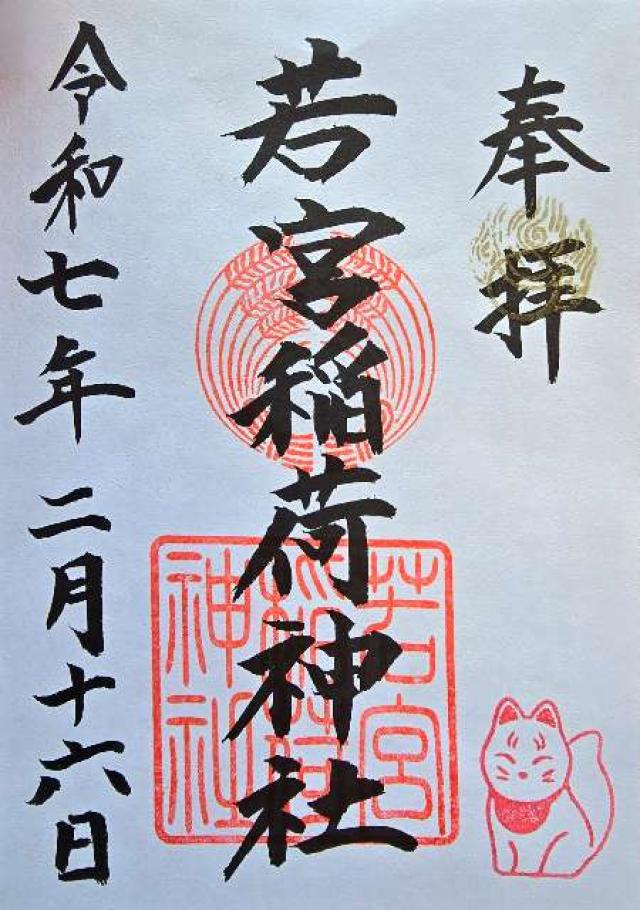 奉拝
若宮稲荷神社
令和七年二月十六日
若宮
稲荷
神社